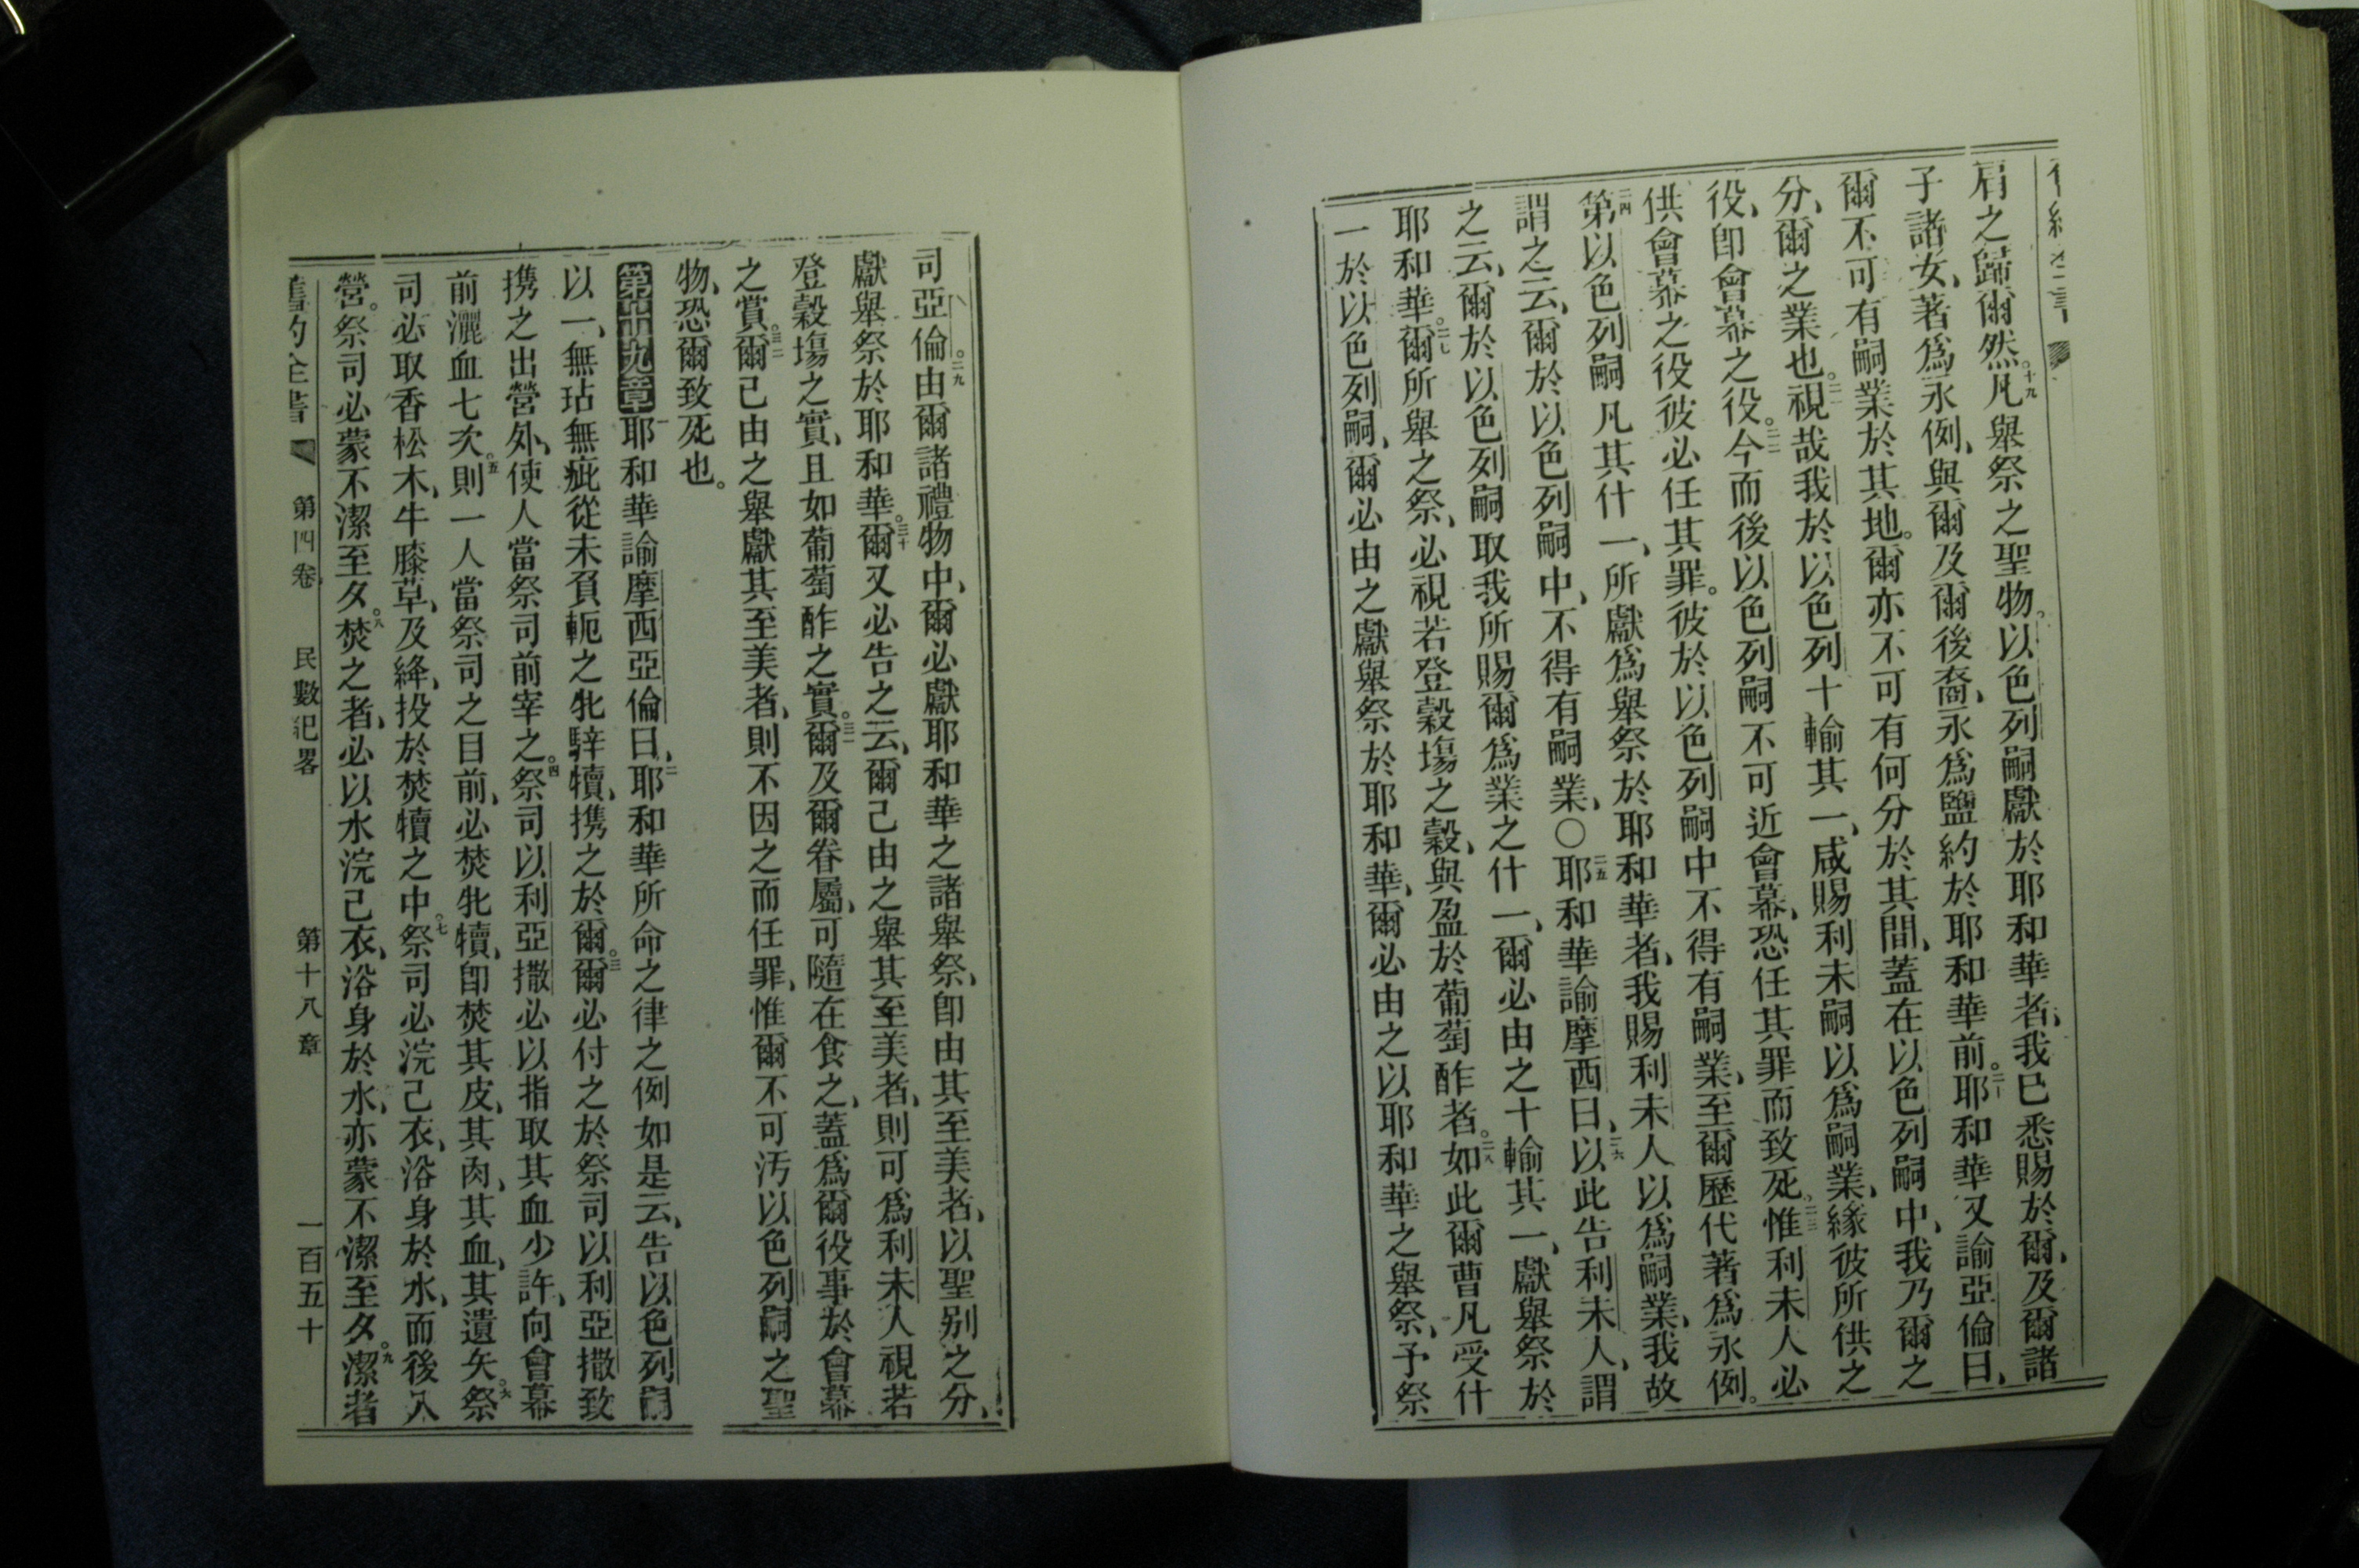 肩之歸爾然。十九凡舉祭之聖物。以色列嗣獻於耶和華者、我已悉賜於爾、及爾諸
子諸女、著爲永例、與爾及爾後裔、永爲鹽約於耶和華前。二十耶和華又諭亞倫曰、
爾不可有嗣業於其地。爾亦不可有何分於其間、蓋在以色列嗣中、我乃爾之
分、爾之業也。二一視哉我於以色列十輸其一、咸賜利未嗣以爲嗣業、緣彼所供之
役、卽會幕之役。二二今而後以色列嗣不可近會幕、恐任其罪而致死。二三惟利未人必
供會幕之役彼必任其罪。彼於以色列嗣中不得有嗣業、至爾歷代著爲永例。
二四第以色列嗣凡其什一、所獻爲舉祭於耶和華者、我賜利未人以爲嗣業、我故
謂之云、爾於以色列嗣中、不得有嗣業、〇二五耶和華諭摩西曰、二六以此告利未人、謂
之云、爾於以色列嗣取我所賜爾爲業之什一、爾必由之十輸其一、獻舉祭於
耶和華。二七爾所舉之祭、必視若登穀塲之穀、與盈於葡萄酢者。二八如此爾曹凡受什
一於以色列嗣、爾必由之獻舉祭於耶和華、爾必由之以耶和華之舉祭、予祭
司亞倫。二九由爾諸禮物中、爾必獻耶和華之諸舉祭、卽由其至美者、以聖别之分、
獻舉祭於耶和華。三十爾又必告之云、爾己由之舉其至美者、則可爲利未人視若
登穀塲之實、且如葡萄酢之實。三一爾及爾眷屬、可隨在食之、蓋爲爾役事於會幕
之賞。三二爾己由之舉獻其至美者、則不因之而任罪、惟爾不可汚以色列嗣之聖
物、恐爾致死也。
第十九章一耶和華諭摩西亞倫曰、二耶和華所命之律之例如是云、告以色列嗣
以一、無玷無疵從未負軛之牝騂犢、携之於爾。三爾必付之於祭司以利亞撒致
携之出營外、使人當祭司前宰之。四祭司以利亞撒必以指取其血少許、向會幕
前灑血七次。五則一人當祭司之目前、必焚牝犢、卽焚其皮、其肉、其血、其遺矢。六祭
司必取香松木、牛膝草、及絳、投於焚犢之中。七祭司必浣己衣、浴身於水、而後入
營。祭司必蒙不潔至夕。八焚之者、必以水浣己衣、浴身於水、亦蒙不潔至夕。九潔者
舊約全書 第四卷 民數紀畧 第十八章 一百五十